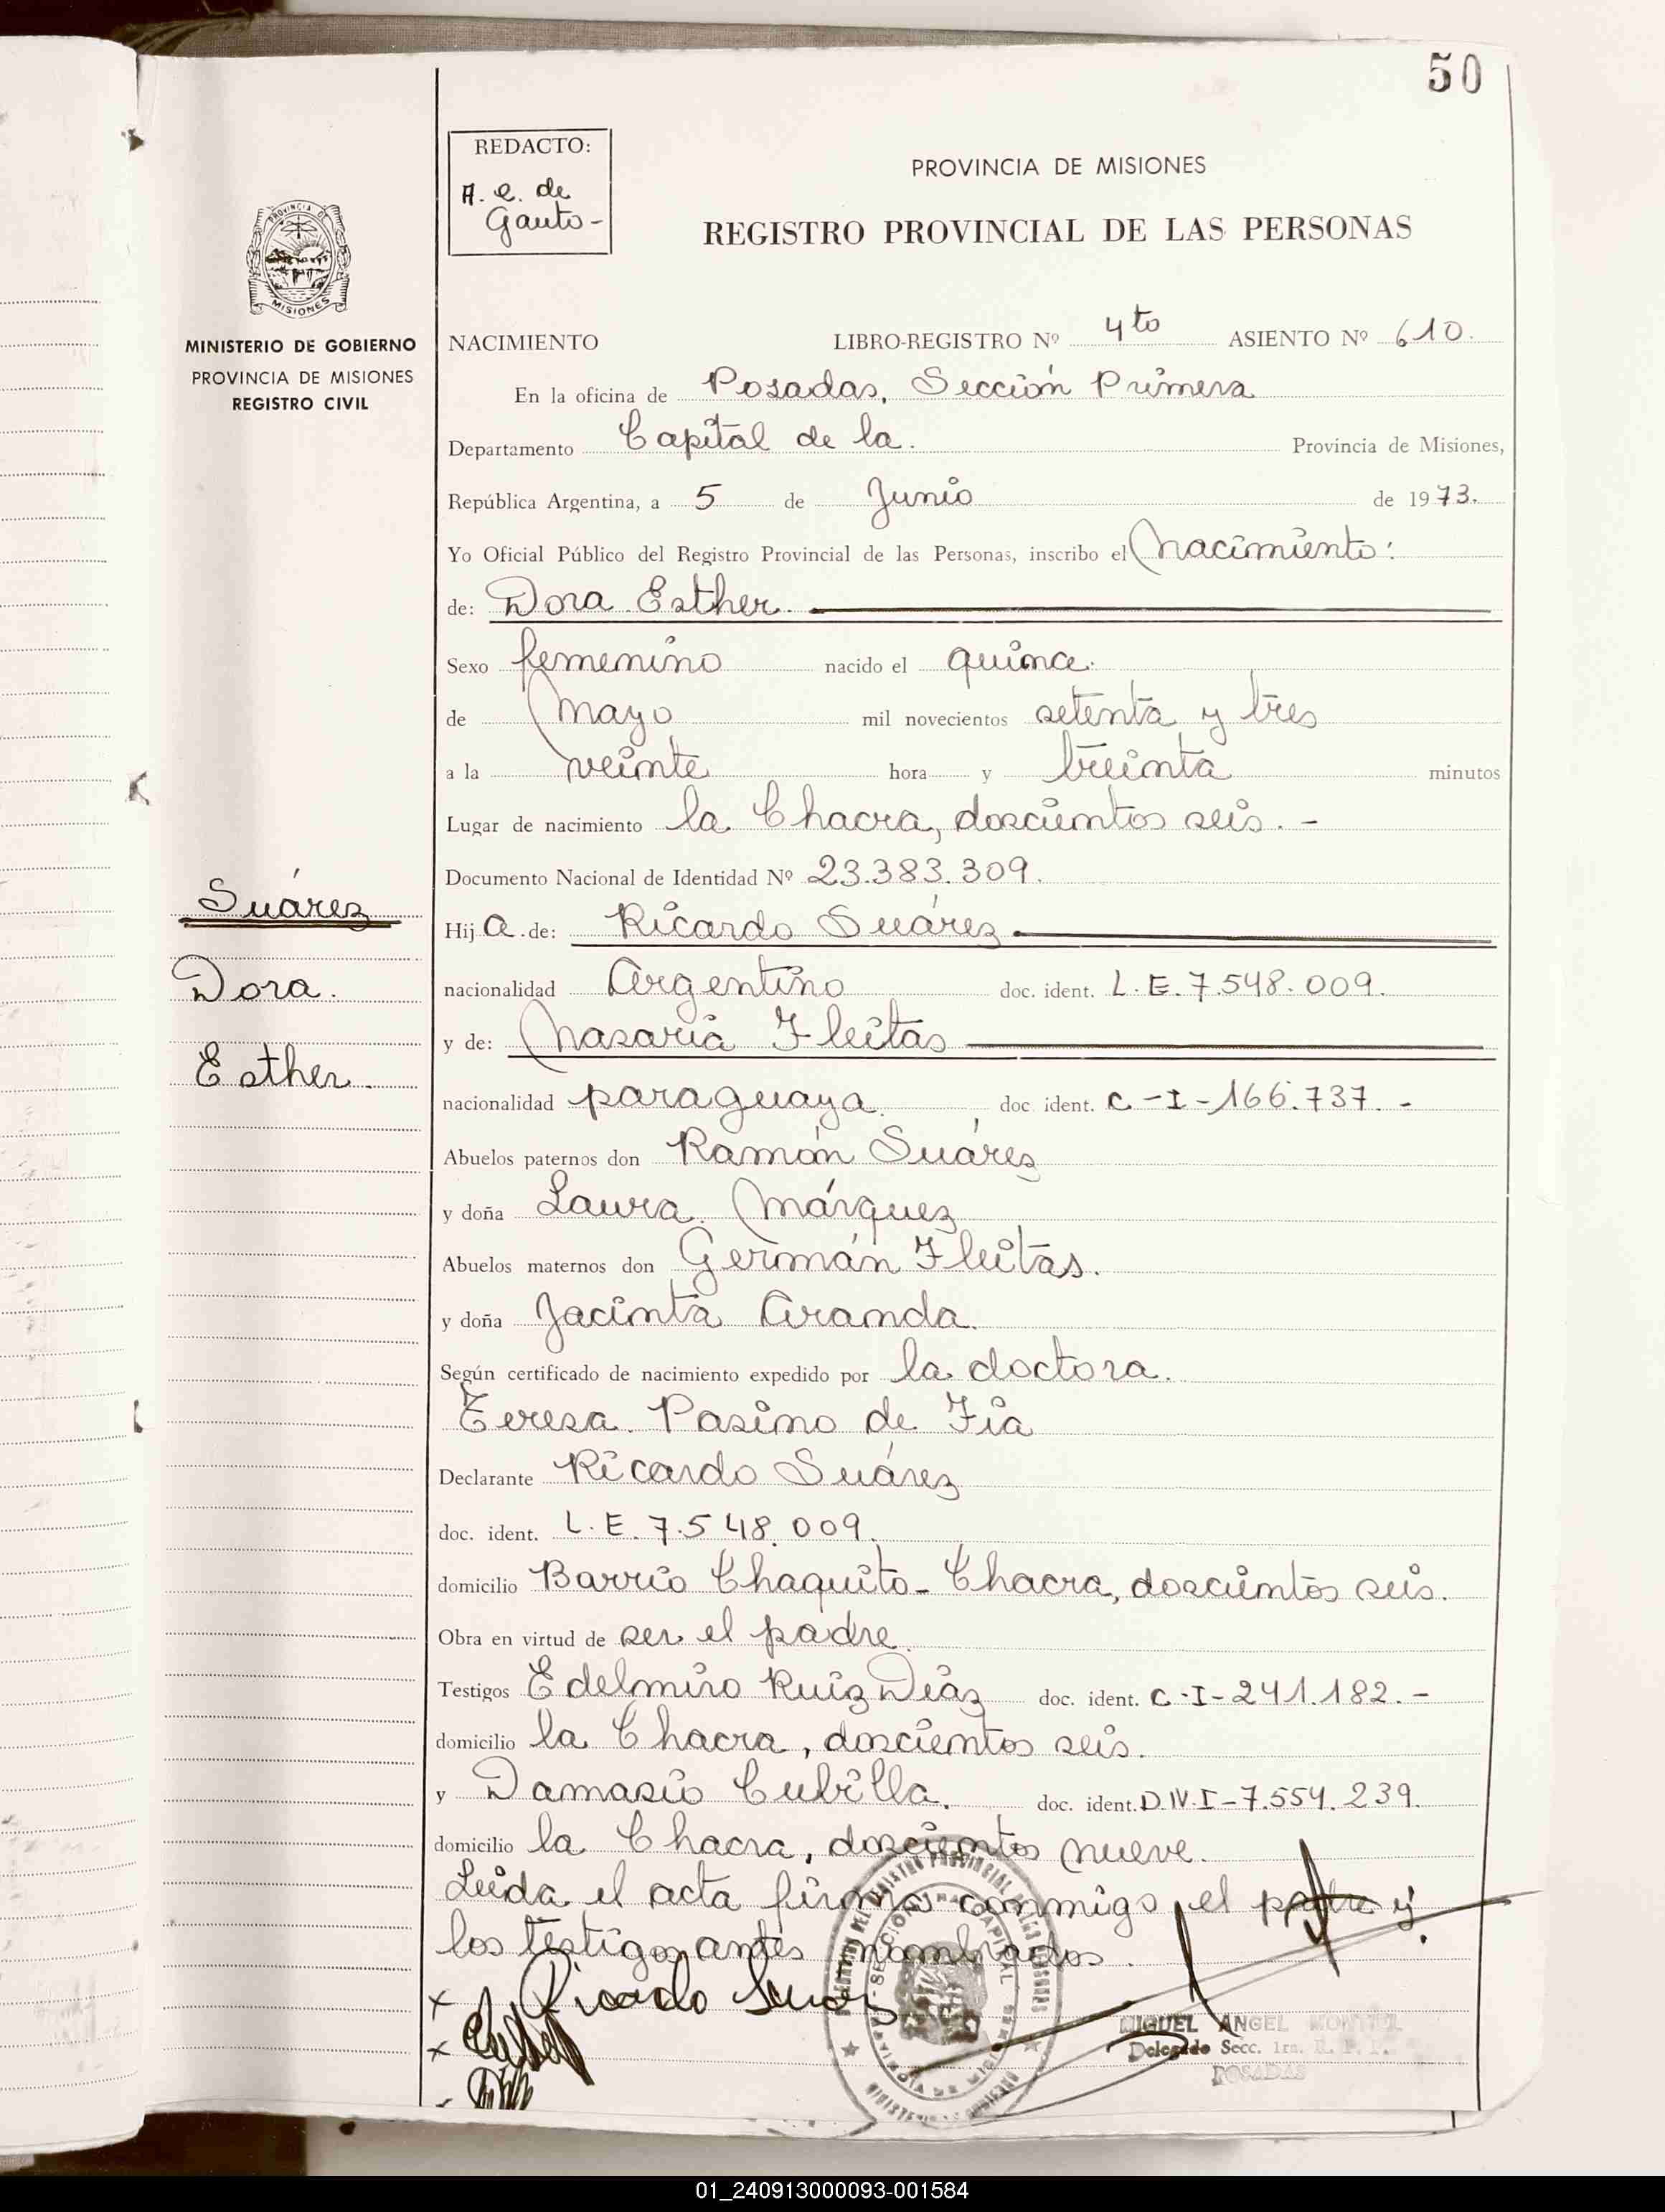 50
REDACTO:
A. e. de
Gauto-
PROVINCIA DE MISIONES
REGISTRO PROVINCIAL DE LAS PERSONAS
PROVINCIA DE
MISIONES
MINISTERIO DE GOBIERNO
PROVINCIA DE MISIONES
REGISTRO CIVIL
NACIMIENTO LIBRO-REGISTRO Nº 4to ASIENTO Nº 610.
En la oficina de Posadas, Sección Primera
Departamento Capital de la. Provincia de Misiones,
República Argentina, a 5 de Junio de 1973.
Yo Oficial Público del Registro Provincial de las Personas, inscribo el Nacimiento:
de: Dora Esther.
Sexo femenino nacido el quince.
de Mayo mil novecientos setenta y tres
a la veinte hora y treinta minutos
Lugar de nacimiento la Chacra, doscientos seis. -
Documento Nacional de Identidad Nº 23.383.309.
Suárez
Hija de: Ricardo Suárez
Dora.
nacionalidad Argentino doc. ident. L.E. 7.548.009.
y de: Nasaria Fleitas
Esther.
nacionalidad paraguaya. doc. ident. C-I-166.737. -
Abuelos paternos don Ramón Suárez
y doña Laura Márquez
Abuelos maternos don Germán Fleitas.
y doña Jacinta Aranda.
Según certificado de nacimiento expedido por la doctora.
Teresa Pasino de Fia
Declarante Ricardo Suárez
doc. ident. L.E. 7.548.009.
domicilio Barrio Chaquito- Chacra, doscientos seis.
Obra en virtud de ser el padre.
Testigos Edelmiro Ruiz Diaz doc. ident. C-I-241.182.-
domicilio la Chacra, doscientos seis.
y Damasio Cubilla. doc. ident. D.N.I-7.554.239.
domicilio la Chacra, doscientos nueve.
Leida el acta firma conmigo el padre y
los testigos antes nombrados.
x Ricardo Suarez
x
MIGUEL ANGEL MONTIEL
Delegado Secc. 1ra. R. P. P.
POSADAS
01_240913000093-001584